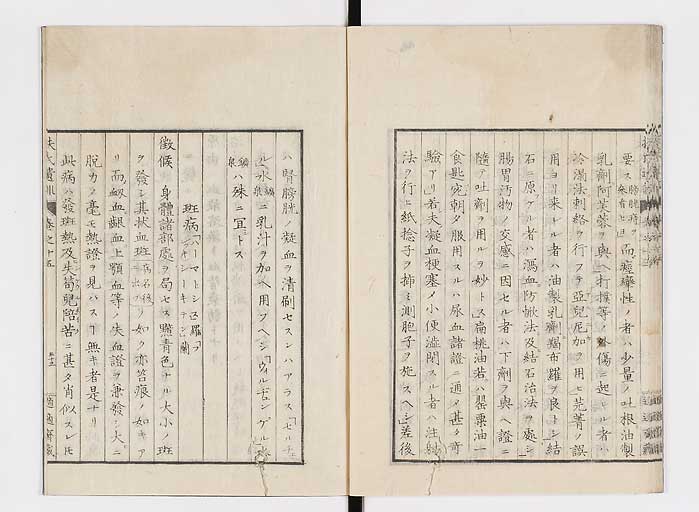 要ス膀胱痙ヲ参看セヨ而痙攣性ノ者ハ少量ノ吐根油製
乳劑阿芙蓉ヲ與ヘ打撲等ノ外傷ニ起ル者ハ
冷濕法刺絡ヲ行フテ亞兒尼加ヲ用ヒ芫菁ノ誤
用ヨリ来レル者ハ油製乳劑羯布羅ヲ良トシ結
石ニ原ツケル者ハ瀉血防嗽法及結石治法ヲ處シ
腸胃汚物ノ交感ニ因セル者ハ下劑ヲ與ヘ證ニ
隨テ吐劑ヲ用ルヲ妙トス扁桃油若ハ罌粟油一
食匙宛朝夕服用スルハ尿血諸證ニ通メ甚タ奇
驗アリ若夫凝血梗塞ノ小便澁閉スル者ハ注射
法ヲ行ヒ紙捻子ヲ挿ミ測胞子ヲ施スヘシ差後
ハ腎膀胱ノ凝血ヲ清刷セスンハアラス「セルテ
ル」水礦泉ニ乳汁ヲ加ヘ用フヘシ「ウィルヂュンゲル」礦
泉ハ殊ニ宜トス
斑病
徴候 身體諸部處ヲ局セス黯青色ナル大小ノ斑
ヲ發シ其状血斑病名後ニ出ツノリ如ク亦笞痕ノ如キア
リ而衂血齦血上顎血等ノ失血證ヲ兼發シ大ニ
脱力メ毫モ熱證ヲ見ハス丁無キ者是ナリ
此病ハ發斑熱及失荀兒陪苦ニ甚タ肖似スレ𪜈
扶氏遺訓 卷之十五
適適齋藏